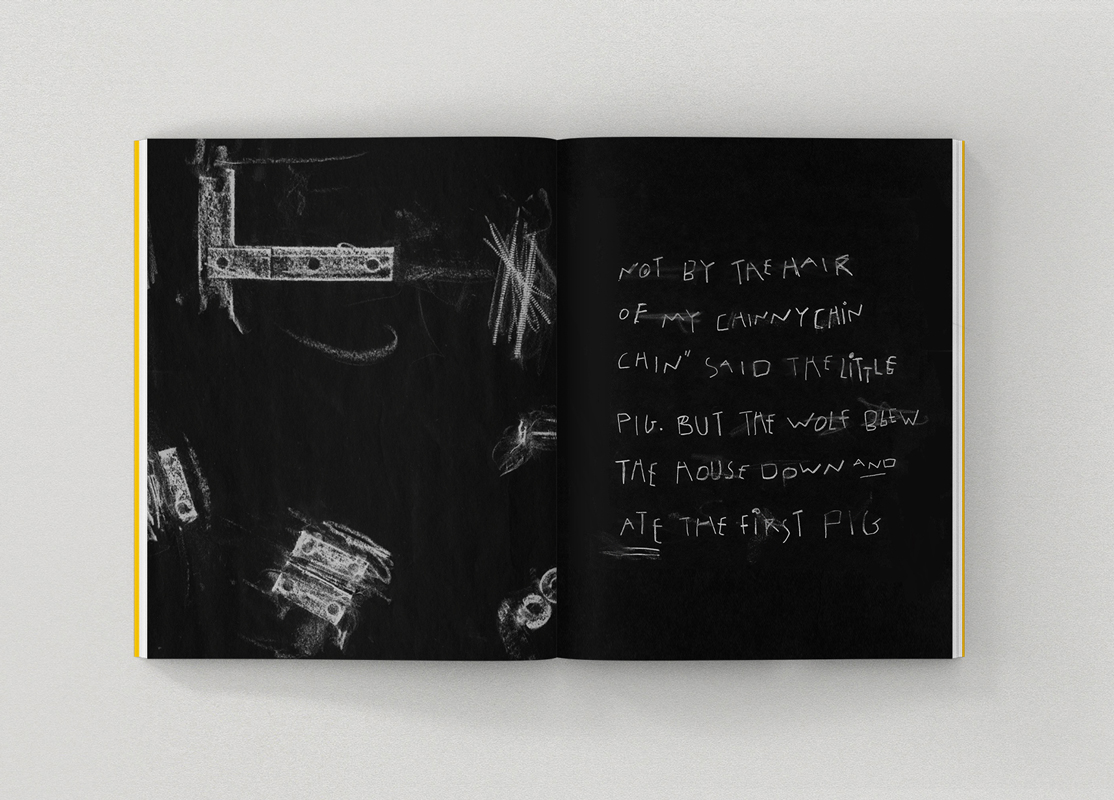 NOT BY THE HAIR
OF MY CHINNY CHiN
CHIN" SAID THE LiTTLE
PIG. BUT THE WOLF BLEW
THE HOUSE DOWN AND
ATE THE FiRST PIG